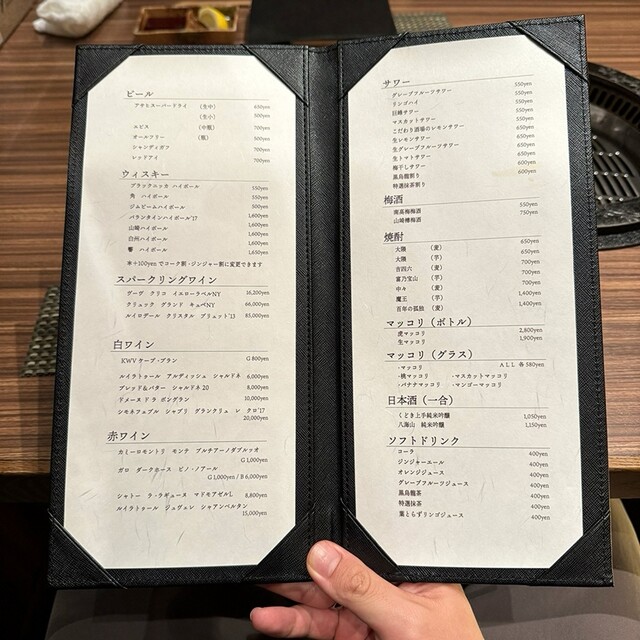 ビール
アサヒスーパードライ (生中) 650yen
(生小) 500yen
エビス (中瓶) 700yen
オールフリー (瓶) 500yen
シャンディガフ 700yen
レッドアイ 700yen
ウィスキー
ブラックニッカ ハイボール 550yen
角 ハイボール 550yen
ジムビームハイボール 500yen
バランタインハイボール'17 1,600yen
山崎ハイボール 1,600yen
白州ハイボール 1,600yen
響 ハイボール 1,650yen
※+100yen でコーク割・ジンジャー割に変更できます
スパークリングワイン
ヴーヴ クリコ イエローラベルNY 16,200yen
クリュッグ グランド キュベNY 66,000yen
ルイロデール クリスタル ブリュット'13 85,000yen
白ワイン
KWVケープ・ブラン G 800yen
ルイラトゥール アルディッシュ シャルドネ 6,000yen
ブレッド&バター シャルドネ 20 8,000yen
ドメーヌ ドラ ボングラン 10,000yen
シモネフェブル シャブリ グランクリュ レ クロ'17
20,000yen
赤ワイン
カミーロモントリ モンテ プルチアーノダブルッオ
G 1,000yen
ガロ ダークホース ピノ・ノアール
G 1,000yen / B 6,000yen
シャトー ラ・ラギューヌ マドモアゼルL 8,800yen
ルイラトゥール ジュヴレ シャアンベルタン
15,000yen
サワー
グレープフルーツサワー 550yen
リンゴハイ 550yen
巨峰サワー 550yen
マスカットサワー 550yen
こだわり酒場のレモンサワー 550yen
生レモンサワー 650yen
生グレープフルーツサワー 650yen
生トマトサワー 650yen
梅干しサワー 650yen
黒烏龍割り 600yen
特選抹茶割り 600yen
梅酒
南高梅梅酒 550yen
山崎樽梅酒 750yen
焼酎
大隅 (麦) 650yen
大隅 (芋) 650yen
吉四六 (麦) 700yen
富乃宝山 (芋) 700yen
中々 (麦) 700yen
魔王 (芋) 1,400yen
百年の孤独 (麦) 1,400yen
マッコリ(ボトル)
虎マッコリ 2,800yen
生マッコリ 1,900yen
マッコリ(グラス)
・マッコリ ALL 各580yen
・桃マッコリ ・マスカットマッコリ
・バナナマッコリ ・マンゴーマッコリ
日本酒(一合)
くどき上手純米吟醸 1,050yen
八海山 純米吟醸 1,150yen
ソフトドリンク
コーラ 400yen
ジンジャーエール 400yen
オレンジジュース 400yen
グレープフルーツジュース 400yen
黒烏龍茶 400yen
特選抹茶 400yen
葉とらずリンゴジュース 400yen